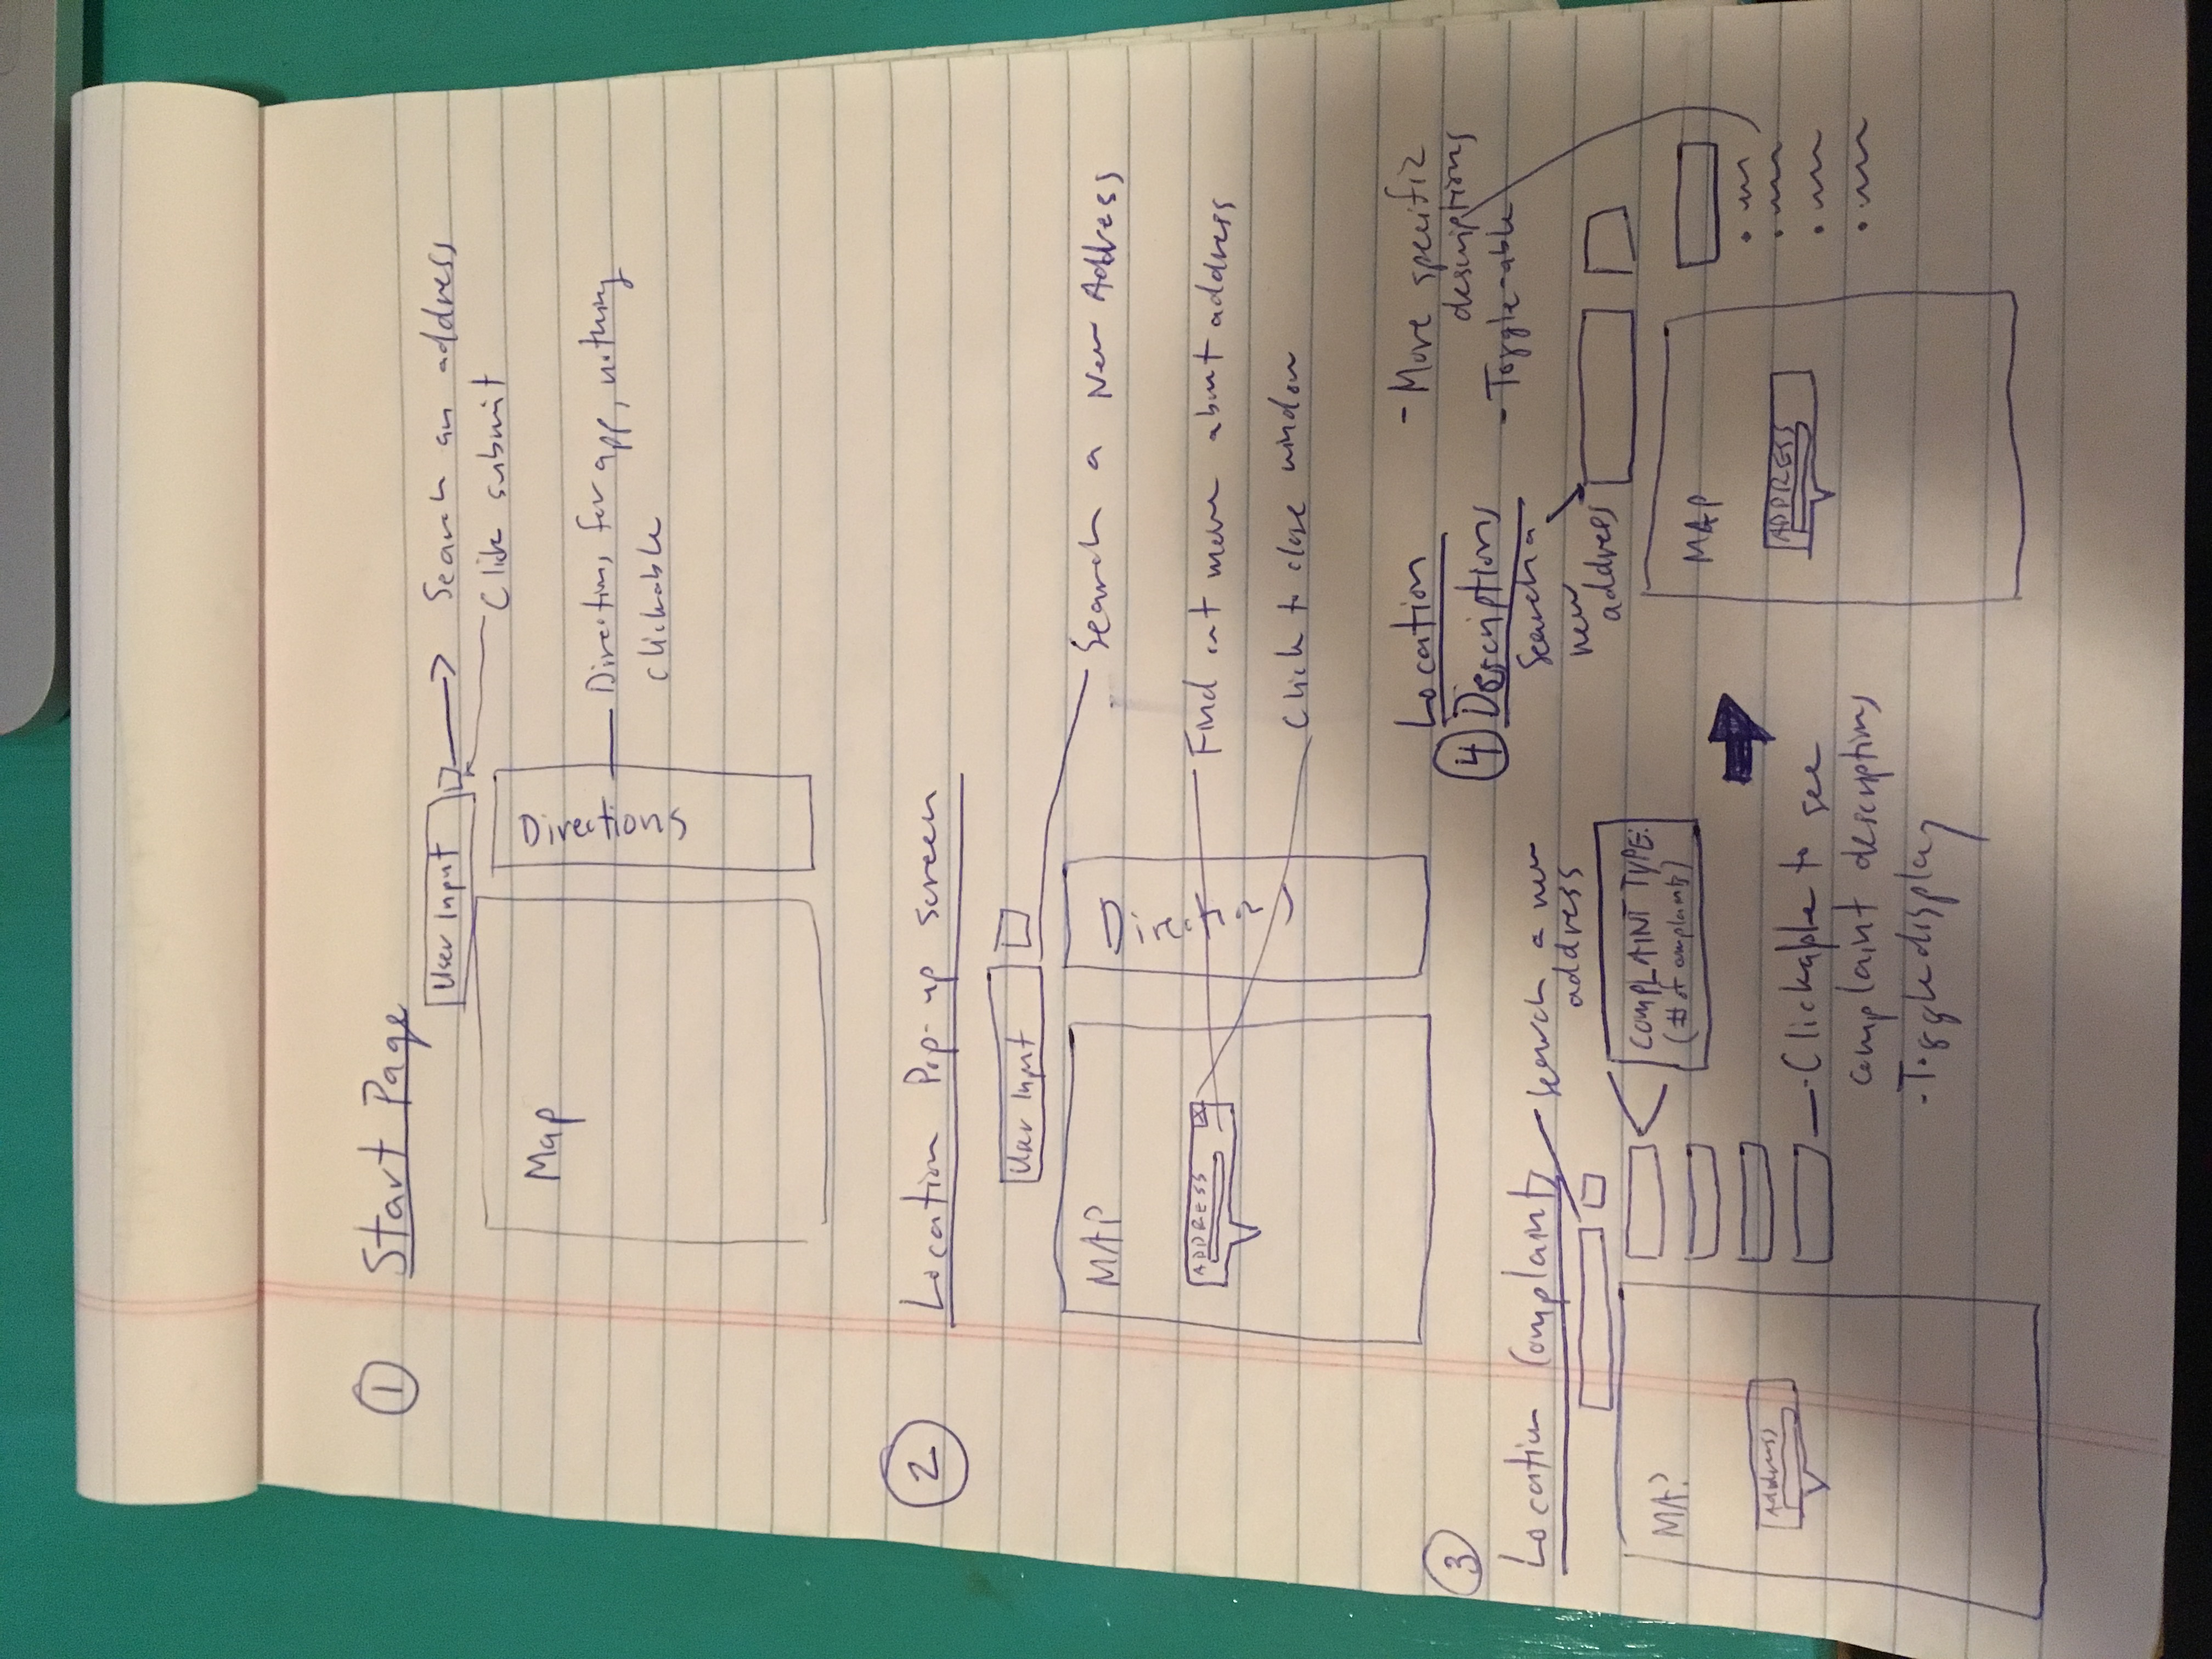 1 Start Page
User Input
Search an address
Click submit
Map
Directions
Directions for app, nothing
clickable
2 Location Pop-up screen
User Input
Search a New Address
MAP
Directions
ADDRESS X
Find out more about address
Click to close window
3
Location Complaints
Search a new
address
MAP
COMPLAINT TYPE:
(# of complaints)
Address
-Clickable to see
complaint descriptions
-Toggle display
4 Location
Descriptions
- More specific
descriptions
- Toggle-able
Search a
new
address
MAP
ADDRESS